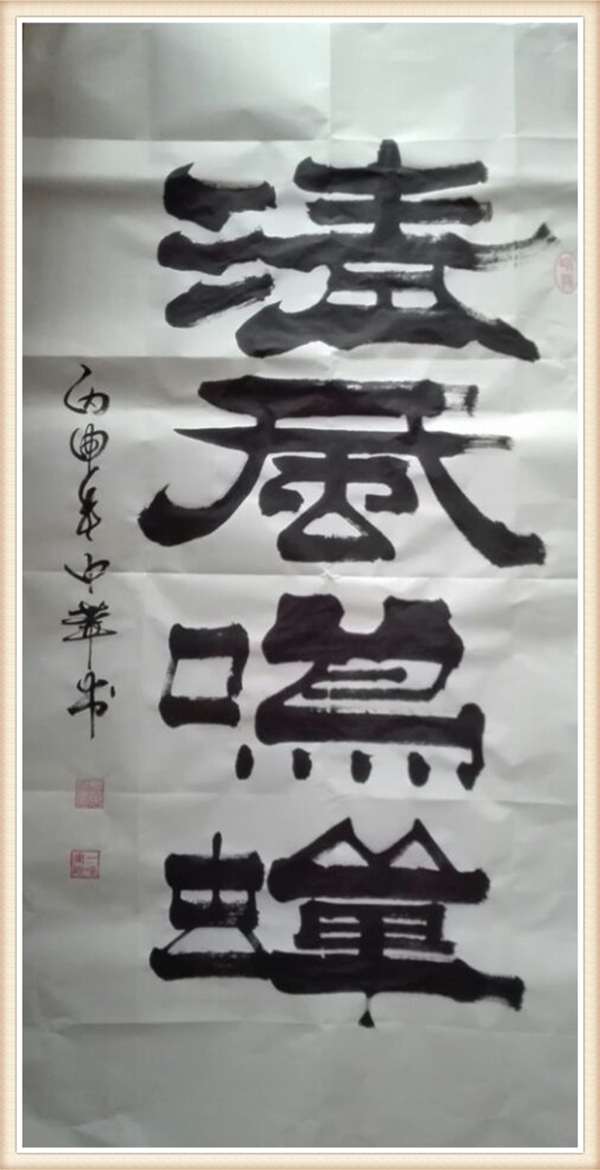 清風鳴蟬
丙申年中華书